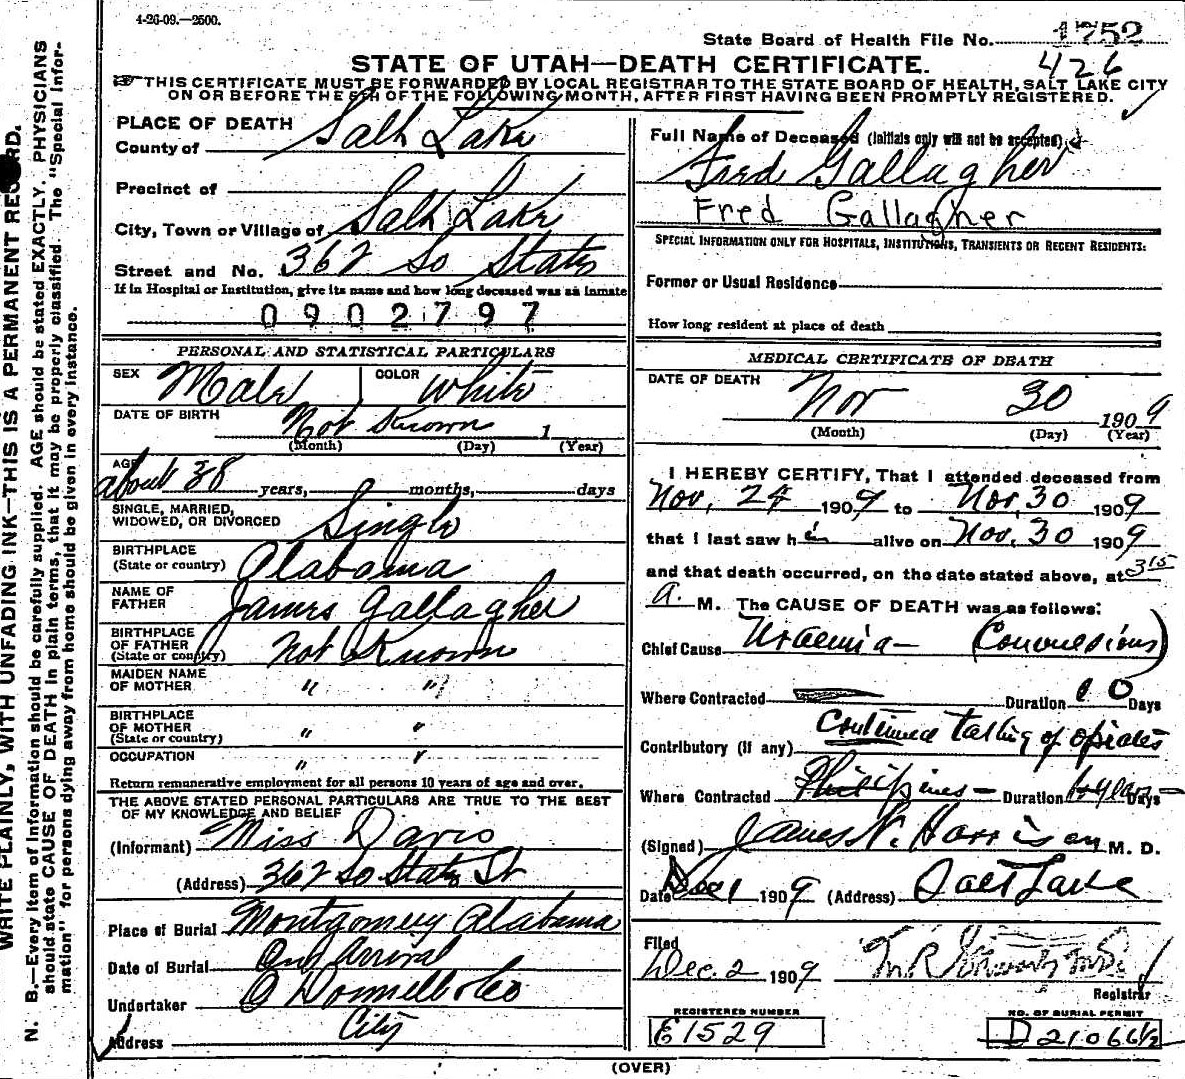 4-26-09.—2500.
State Board of Health File No. 1752
STATE OF UTAH—DEATH CERTIFICATE. 426
THIS CERTIFICATE MUST BE FORWARDED BY LOCAL REGISTRAR TO THE STATE BOARD OF HEALTH, SALT LAKE CITY
ON OR BEFORE THE 5TH OF THE FOLLOWING MONTH, AFTER FIRST HAVING BEEN PROMPTLY REGISTERED.
WRITE PLAINLY, WITH UNFADING INK—THIS IS A PERMANENT RECORD.
N. B.—Every item of information should be carefully supplied. AGE should be stated EXACTLY. PHYSICIANS
should state CAUSE OF DEATH in plain terms, that it may be properly classified. The "Special Infor-
mation" for persons dying away from home should be given in every instance.
PLACE OF DEATH
County of Salt Lake
Precinct of
City, Town or Village of Salt Lake
Street and No. 362 So State
If in Hospital or Institution, give its name and how long deceased was an inmate
0902797
PERSONAL AND STATISTICAL PARTICULARS
SEX Male COLOR White
DATE OF BIRTH Not Known 1
(Month) (Day) (Year)
AGE about 38 years, months, days
SINGLE, MARRIED,
WIDOWED, OR DIVORCED Single
BIRTHPLACE
(State or country) Alabama
NAME OF
FATHER James Gallagher
BIRTHPLACE
OF FATHER
(State or country) Not Known
MAIDEN NAME
OF MOTHER " "
BIRTHPLACE
OF MOTHER
(State or country) " "
OCCUPATION " "
Return remunerative employment for all persons 10 years of age and over.
THE ABOVE STATED PERSONAL PARTICULARS ARE TRUE TO THE BEST
OF MY KNOWLEDGE AND BELIEF
(Informant) Miss Davis
(Address) 362 So State St
Place of Burial Montgomery Alabama
Date of Burial On Arrival
Undertaker O Donnell & Co
Address City
Full Name of Deceased (Initials only will not be accepted)
Fred Gallagher
Fred Gallagher
SPECIAL INFORMATION ONLY FOR HOSPITALS, INSTITUTIONS, TRANSIENTS OR RECENT RESIDENTS:
Former or Usual Residence
How long resident at place of death
MEDICAL CERTIFICATE OF DEATH
DATE OF DEATH Nov 30 1909
(Month) (Day) (Year)
I HEREBY CERTIFY, That I attended deceased from
Nov, 24 1909 to Nov, 30 1909
that I last saw him alive on Nov. 30 1909
and that death occurred, on the date stated above, at 3 15
a. M. The CAUSE OF DEATH was as follows:
Chief Cause Uraemia— (Convulsions)
Where Contracted Duration 10 Days
Contributory (if any) Continued taking of opiates
Where Contracted Philippines — Duration years Days
(Signed) James N. Harrison M. D.
Date Dec 1 1909 (Address) Salt Lake
Filed
Dec. 2 1909
Registrar
REGISTERED NUMBER
E1529
NO. OF BURIAL PERMIT
D 21066½
(OVER)